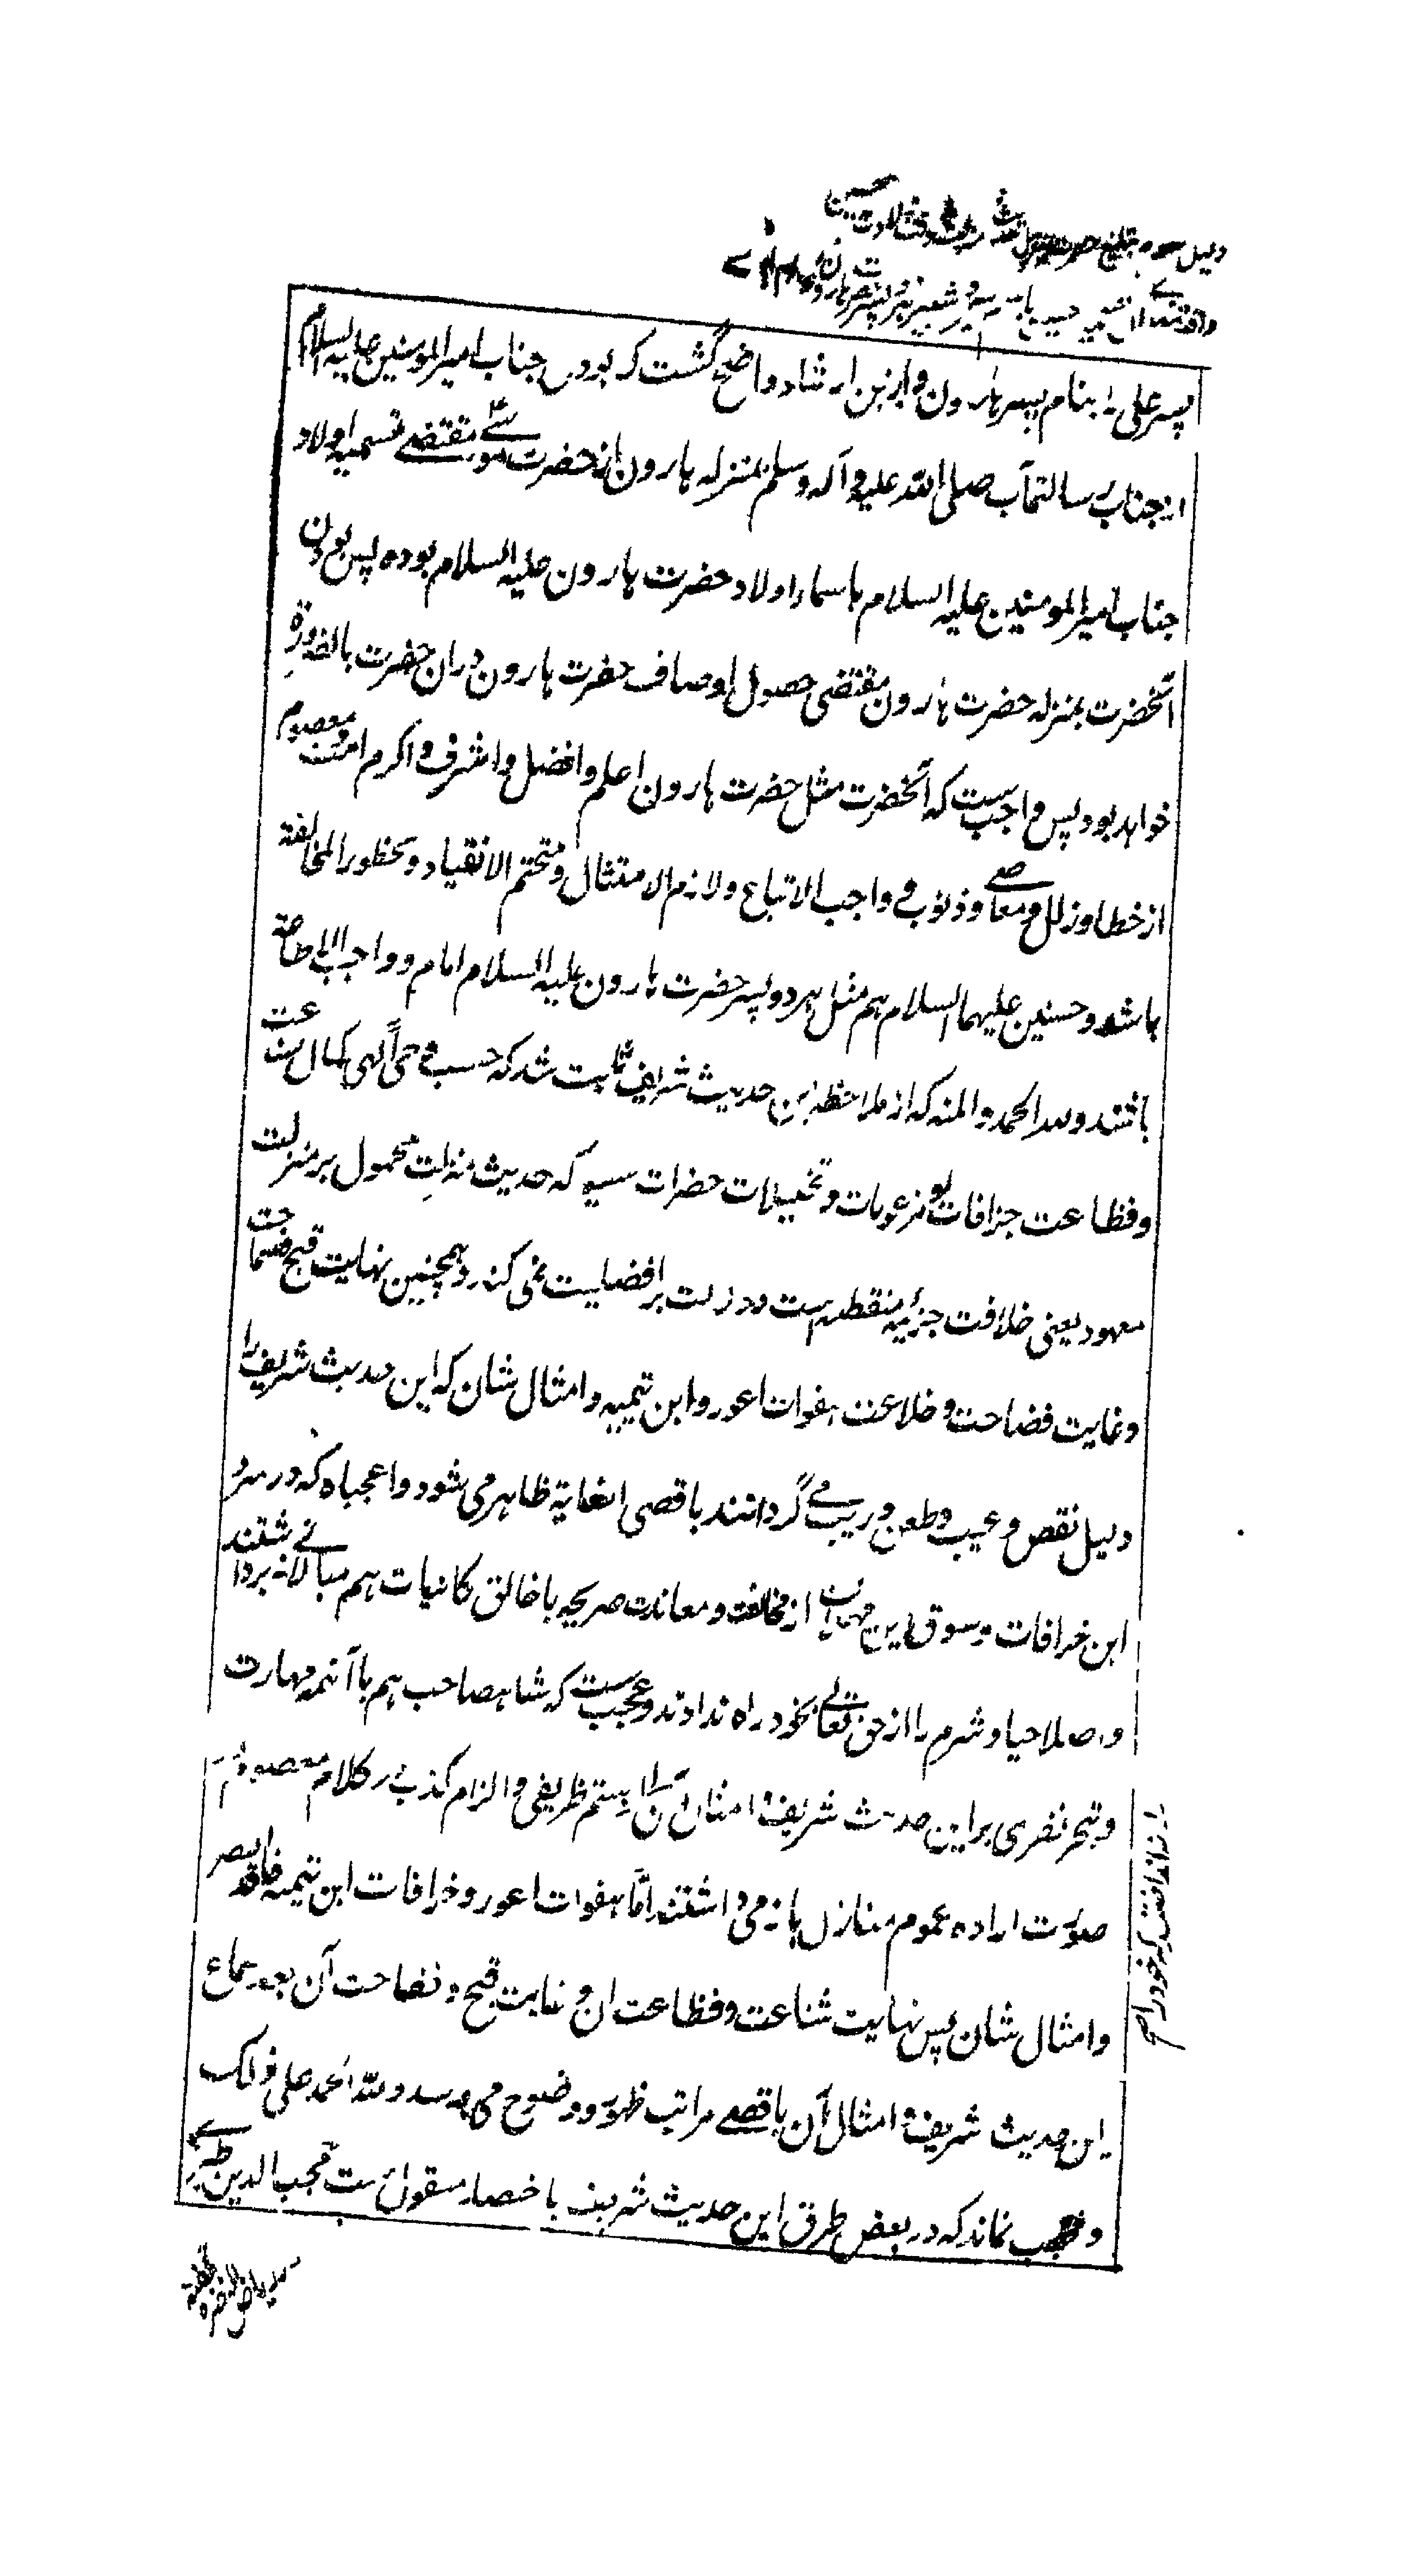 دلیل سوم تبلیغ حضرت جبرئیل حدیث منزلت وقت ولادت حسنین
پسر علی را بنام پسر هارون و ازین ارشاد واضح گشت که بودن جناب امیرالمومنین علیه السلام
از جناب رسالتمآب صلی الله علیه و آله و سلم بمنزله هارون از حضرت موسی مقتضی تسمیه اولاد
جناب امیرالمومنین علیه السلام باسماء اولاد حضرت هارون علیه السلام بوده پس بودن
آنحضرت بمنزله حضرت هارون مقتضی حصول اوصاف حضرت هارون دران حضرت بالضرورة
خواهد بود پس واجب ست که آنحضرت مثل حضرت هارون اعلم و افضل و اشرف و اکرم امت و معصوم
از خطا و زلل و معاصی و ذنوب و واجب الاتباع و لازم الامتثال و متحتم الانقیاد و محظور المخالفة
باشد و حسنین علیهما السلام هم مثل هر دو پسر حضرت هارون علیه السلام امام و واجب الاطاعة
باشند و لله الحمد و المنه که از ملاحظه این حدیث شریف ثابت شد که حسب وحی الهی کمال شناعت
و فظاعت جزافات و مزعومات و تخییلات حضرات سنیه که حدیث منزلت محمول بر منزلت
معهود یعنی خلافت جزئیه منقطعه است و دلالت بر افضلیت نمی کند و همچنین نهایت قبح و سماجت
و غایت فضاحت و خلاعت هفوات اعور و ابن تیمیه و امثال شان که این حدیث شریف را
دلیل نقص و عیب و طعن و ریب می گردانند باقصی الغایة ظاهر می شود و اعجباه که در سرد
این خرافات و سوق این از مخالفت و معاندت صریحه با خالق کائنات هم مبالاتی برنداشتند
و اصلا حیا و شرم را از حق تعالی بخود راه ندادند و عجب ست که شاهصاحب هم با آنهمه مهارت
و تبحر نظری بر این حدیث شریف و امثال آن
صورت اراده عموم منازل باز می داشتند اما هفوات اعور و خرافات ابن تیمیه فاقد البصر
و امثال شان پس نهایت شناعت و فظاعت آن و غایت قبح و فضاحت آن بعد سماع
این حدیث شریف و امثال آن باقصی مراتب ظهور و وضوح می رسد و لله الحمد علی ذلک
و محجب نماند که در بعض طرق این حدیث شریف باختصار منقول ست محب الدین طبری